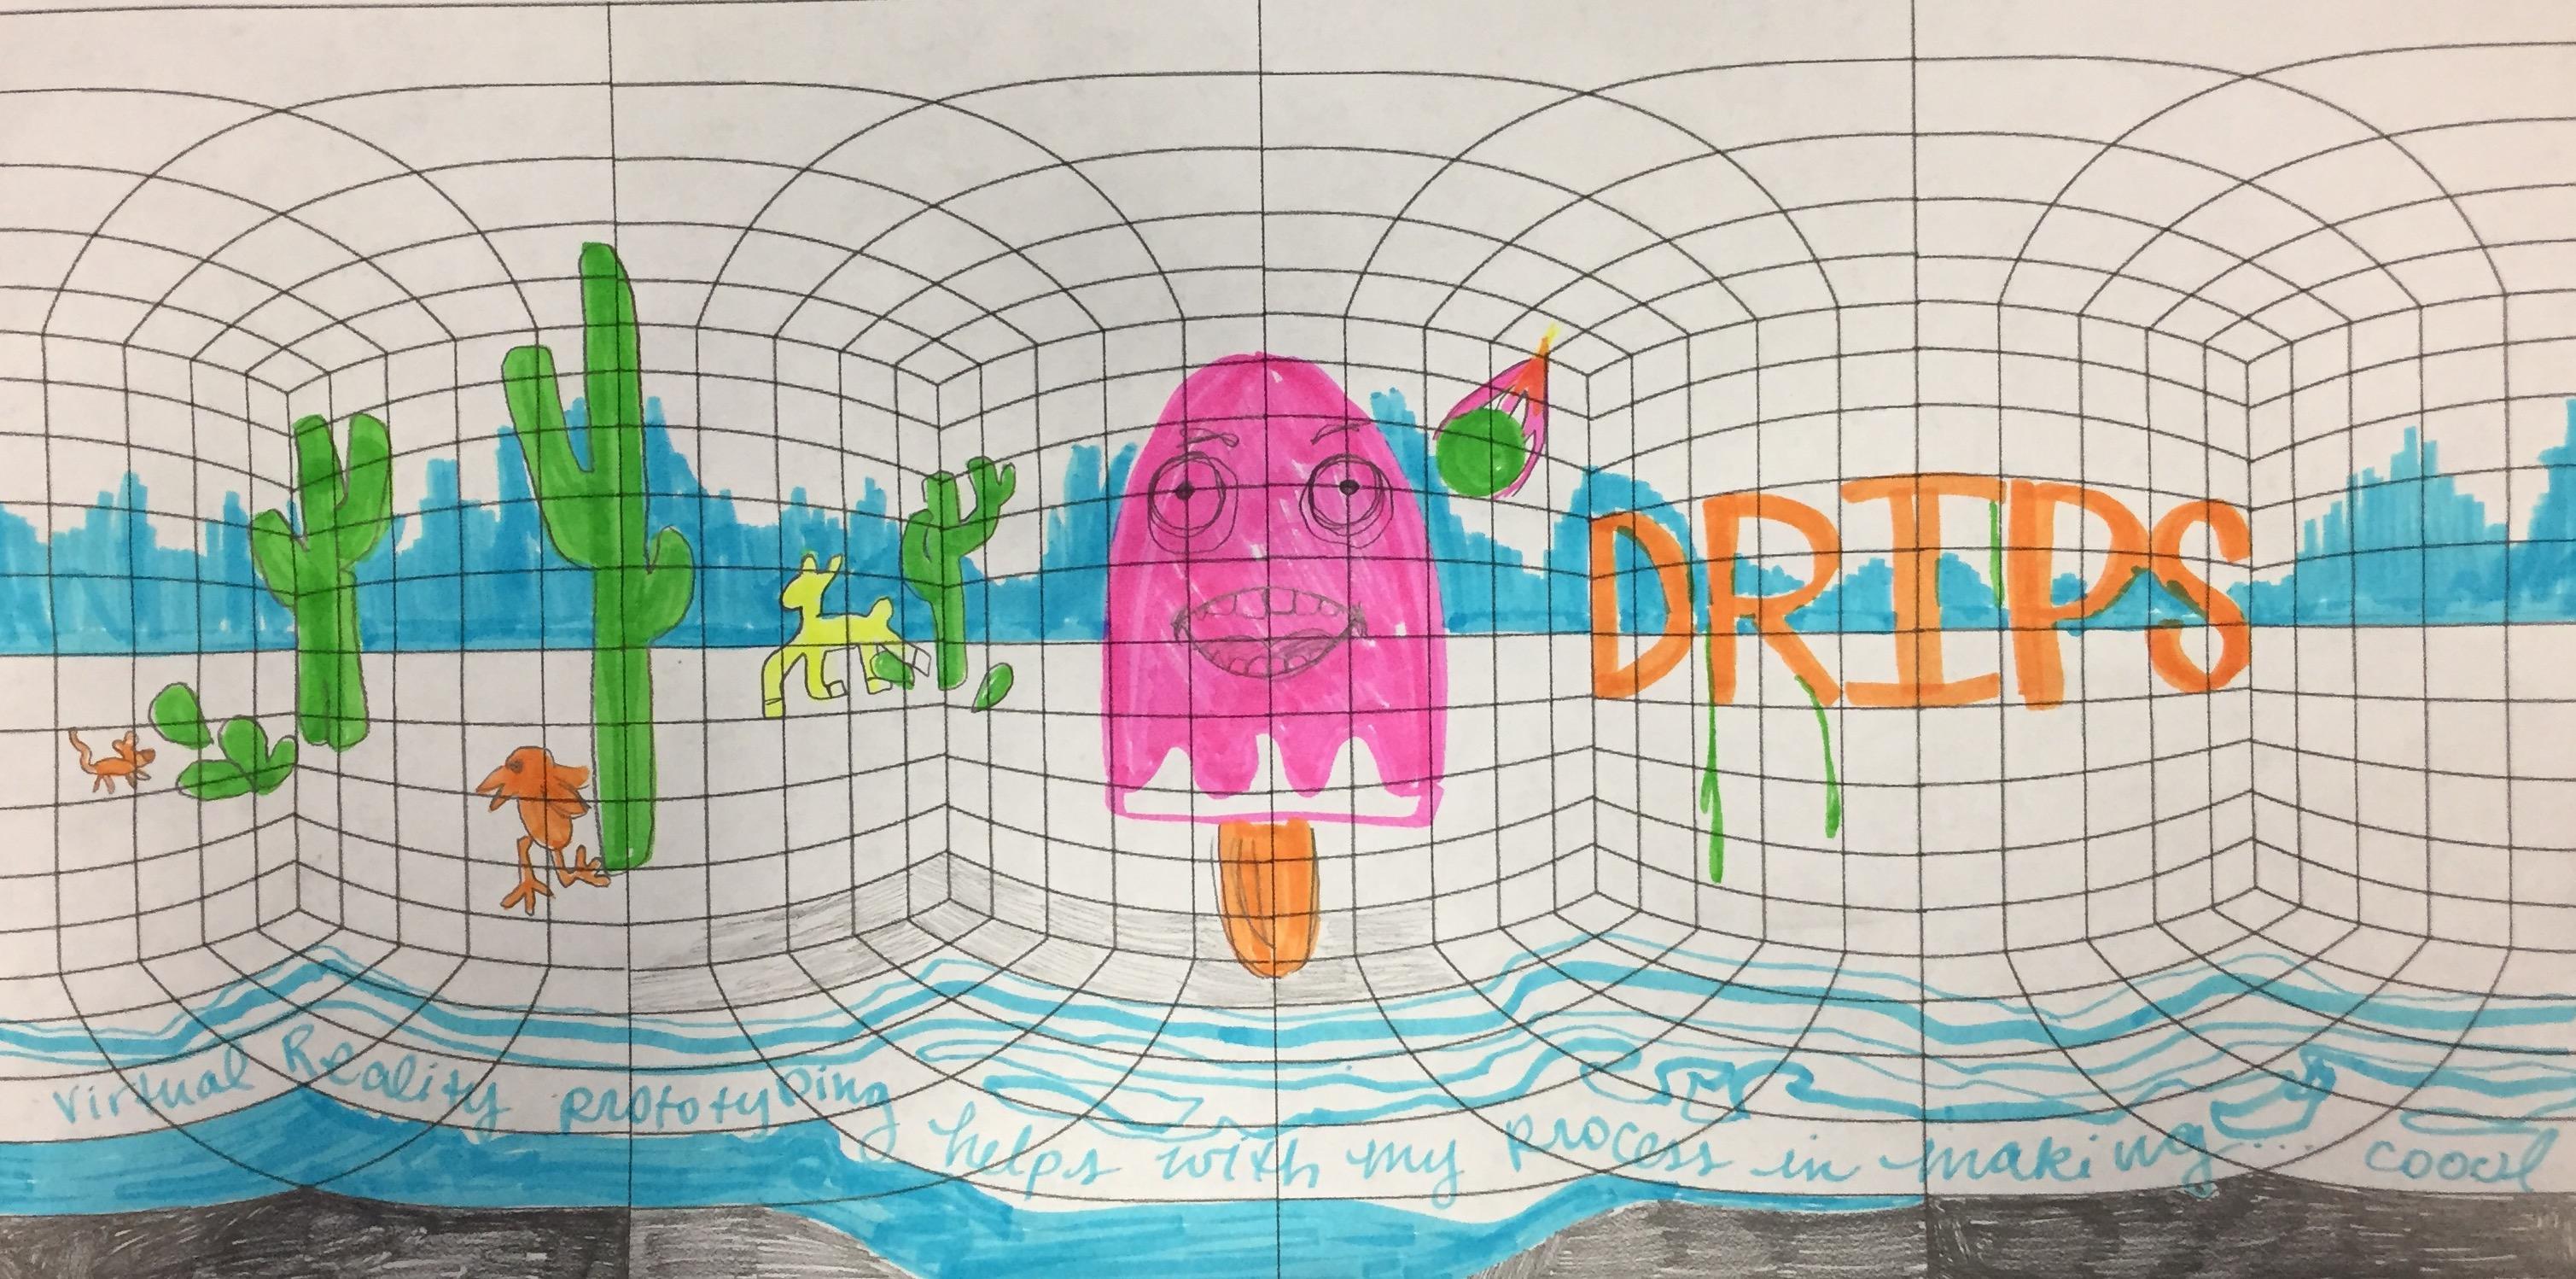 DRIPS
Virtual Reality prototyping helps with my process in making.... coool